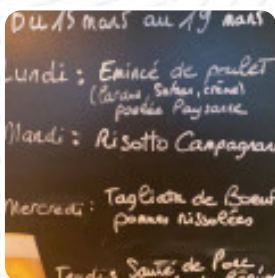 Du 15 mars au 19 mars
Lundi : Emincé de poulet
(
poêlée Paysanne
Mardi : Risotto Campagnar
Mercredi : Tagliata de Boeuf
pommes rissolées
Jeudi : Sauté de Porc,